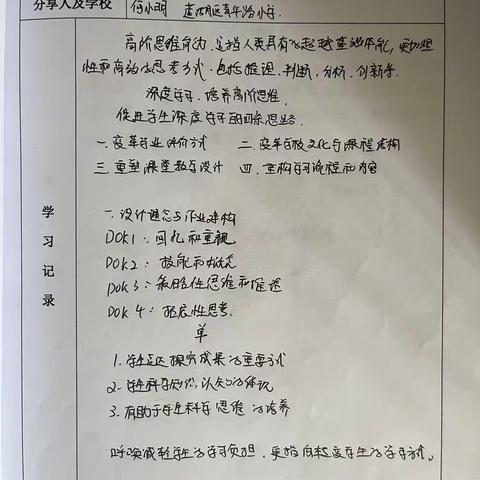 分享人及学校 何小明 莲湖区青年路小学.
高阶思维能力,这指人类具有的超越基础本能,更加理
性而高效的思考方式.包括推理、判断、分析、创新等.
深度学习.培养高阶思维.
促进学生深度学习的四条思路
一.变革学业评价方式 二.变革学校文化与课程结构
三.重塑课堂教学设计 四.重构学习流程和内容
学习记录
一.设计理念与作业建构
DOK1:回忆和重现
DOK2:技能和概念
DOK3:策略性思维和推理
DOK4:拓展性思考.
单
1.学生表达探究成果的重要方式
2.学生科学知识、认知的体现
3.有助于学生科学思维的培养
呼唤减轻学生的学习负担,更指向转变学生的学习方式。